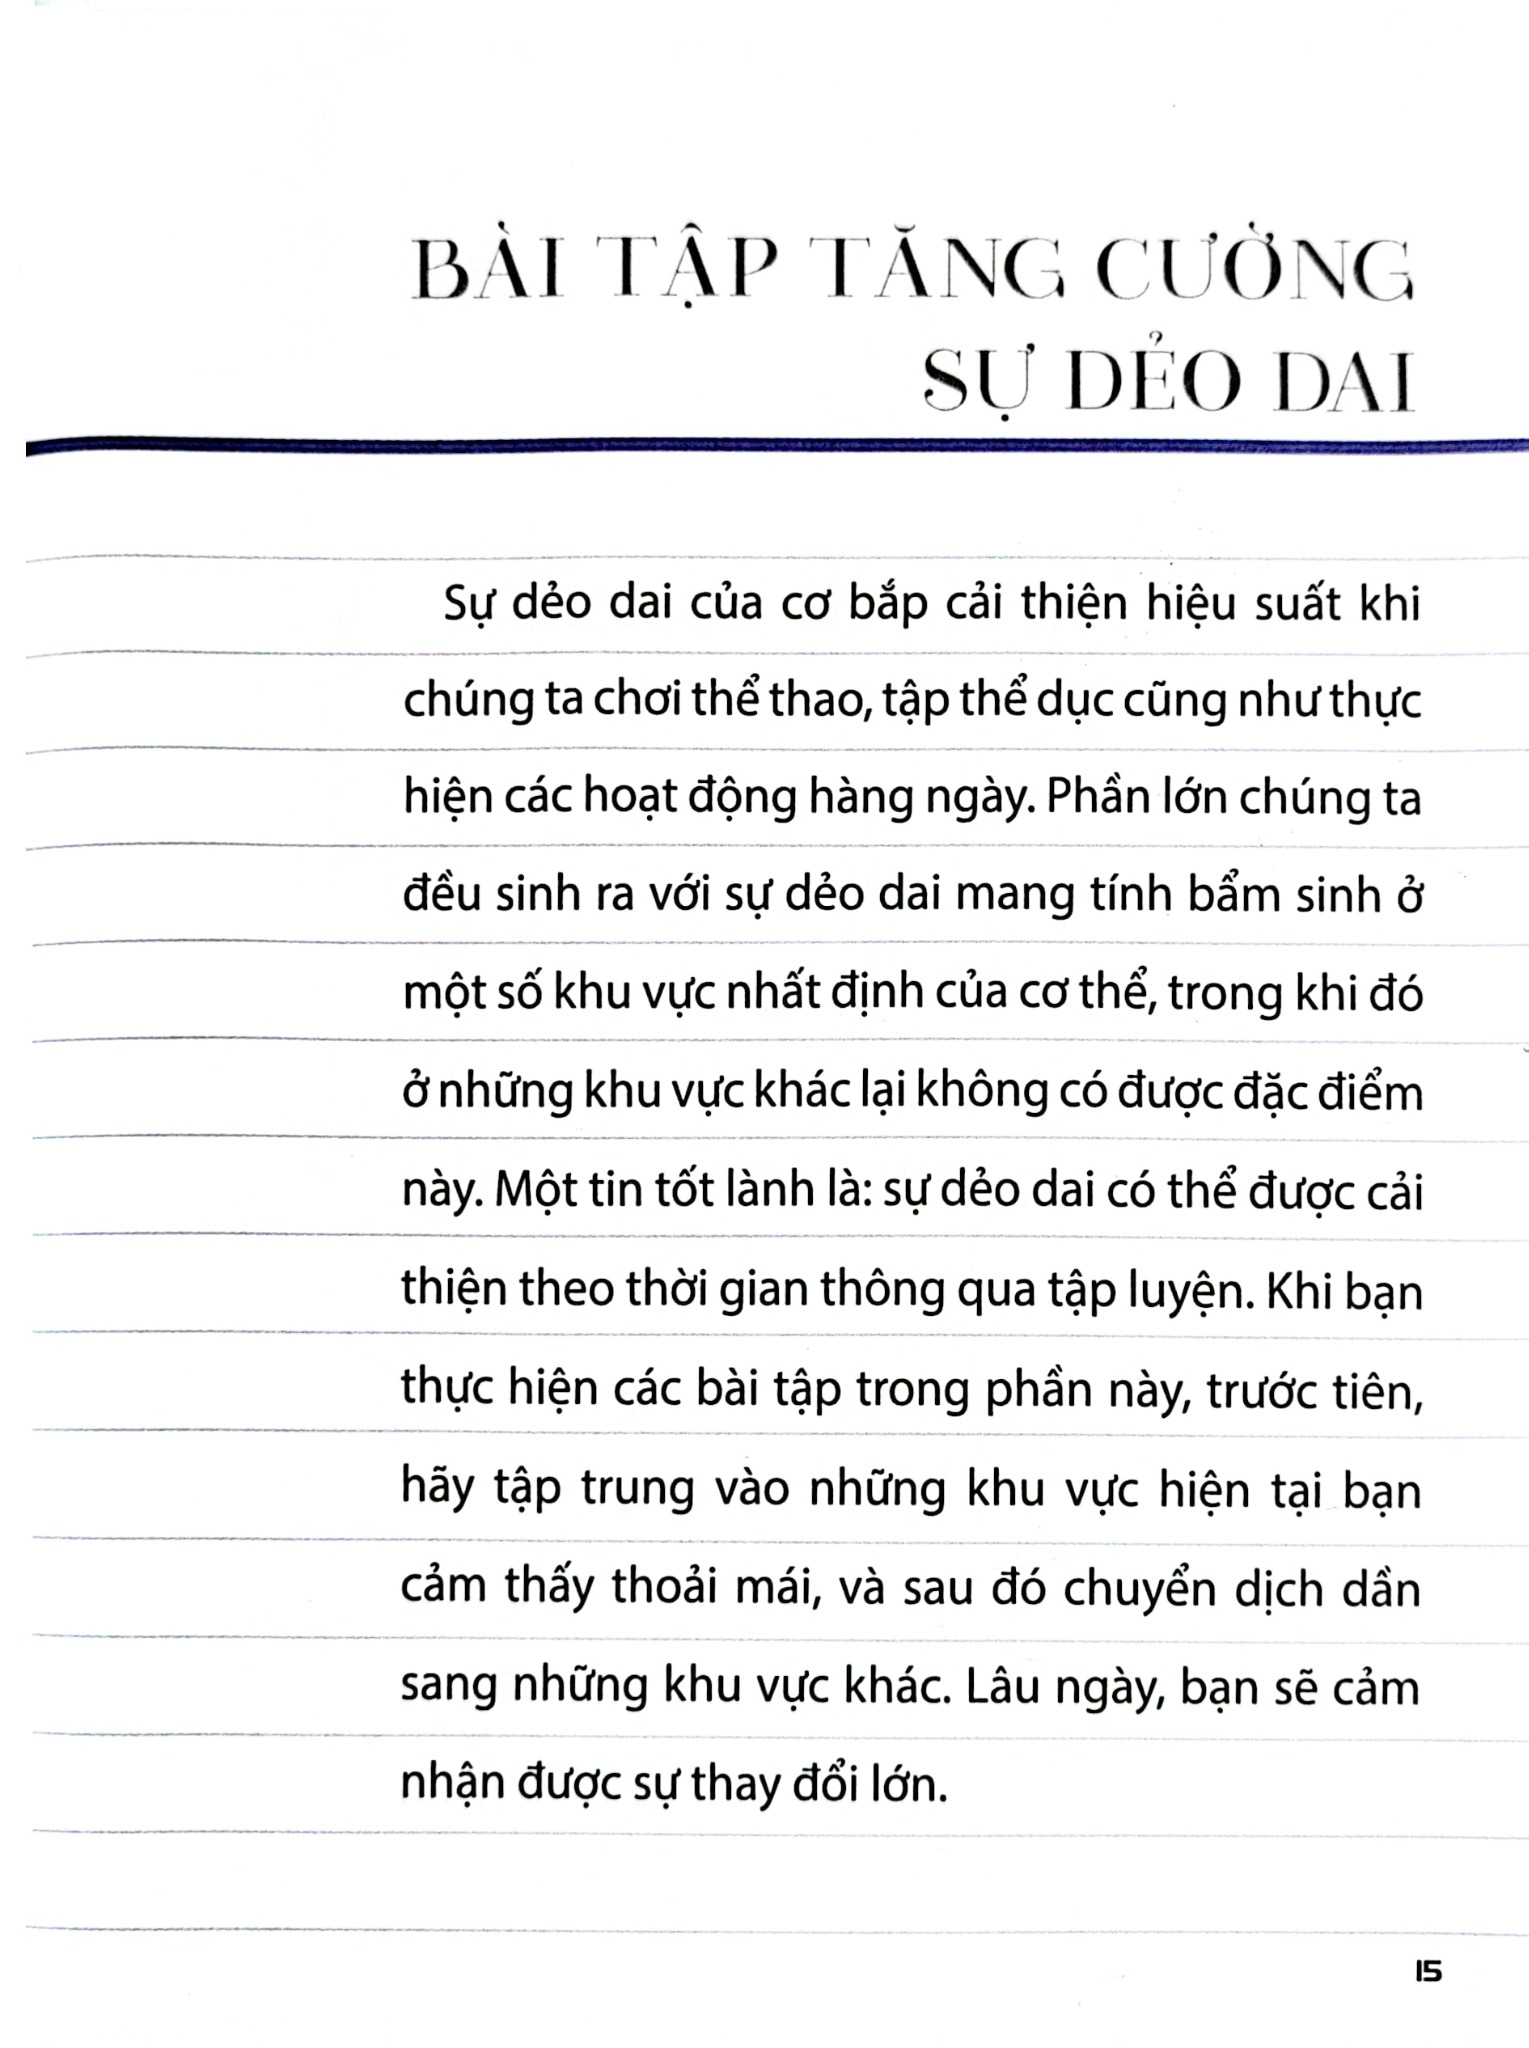 BÀI TẬP TĂNG CƯỜNG
SỰ DẺO DAI
Sự dẻo dai của cơ bắp cải thiện hiệu suất khi
chúng ta chơi thể thao, tập thể dục cũng như thực
hiện các hoạt động hàng ngày. Phần lớn chúng ta
đều sinh ra với sự dẻo dai mang tính bẩm sinh ở
một số khu vực nhất định của cơ thể, trong khi đó
ở những khu vực khác lại không có được đặc điểm
này. Một tin tốt lành là: sự dẻo dai có thể được cải
thiện theo thời gian thông qua tập luyện. Khi bạn
thực hiện các bài tập trong phần này, trước tiên,
hãy tập trung vào những khu vực hiện tại bạn
cảm thấy thoải mái, và sau đó chuyển dịch dần
sang những khu vực khác. Lâu ngày, bạn sẽ cảm
nhận được sự thay đổi lớn.
15